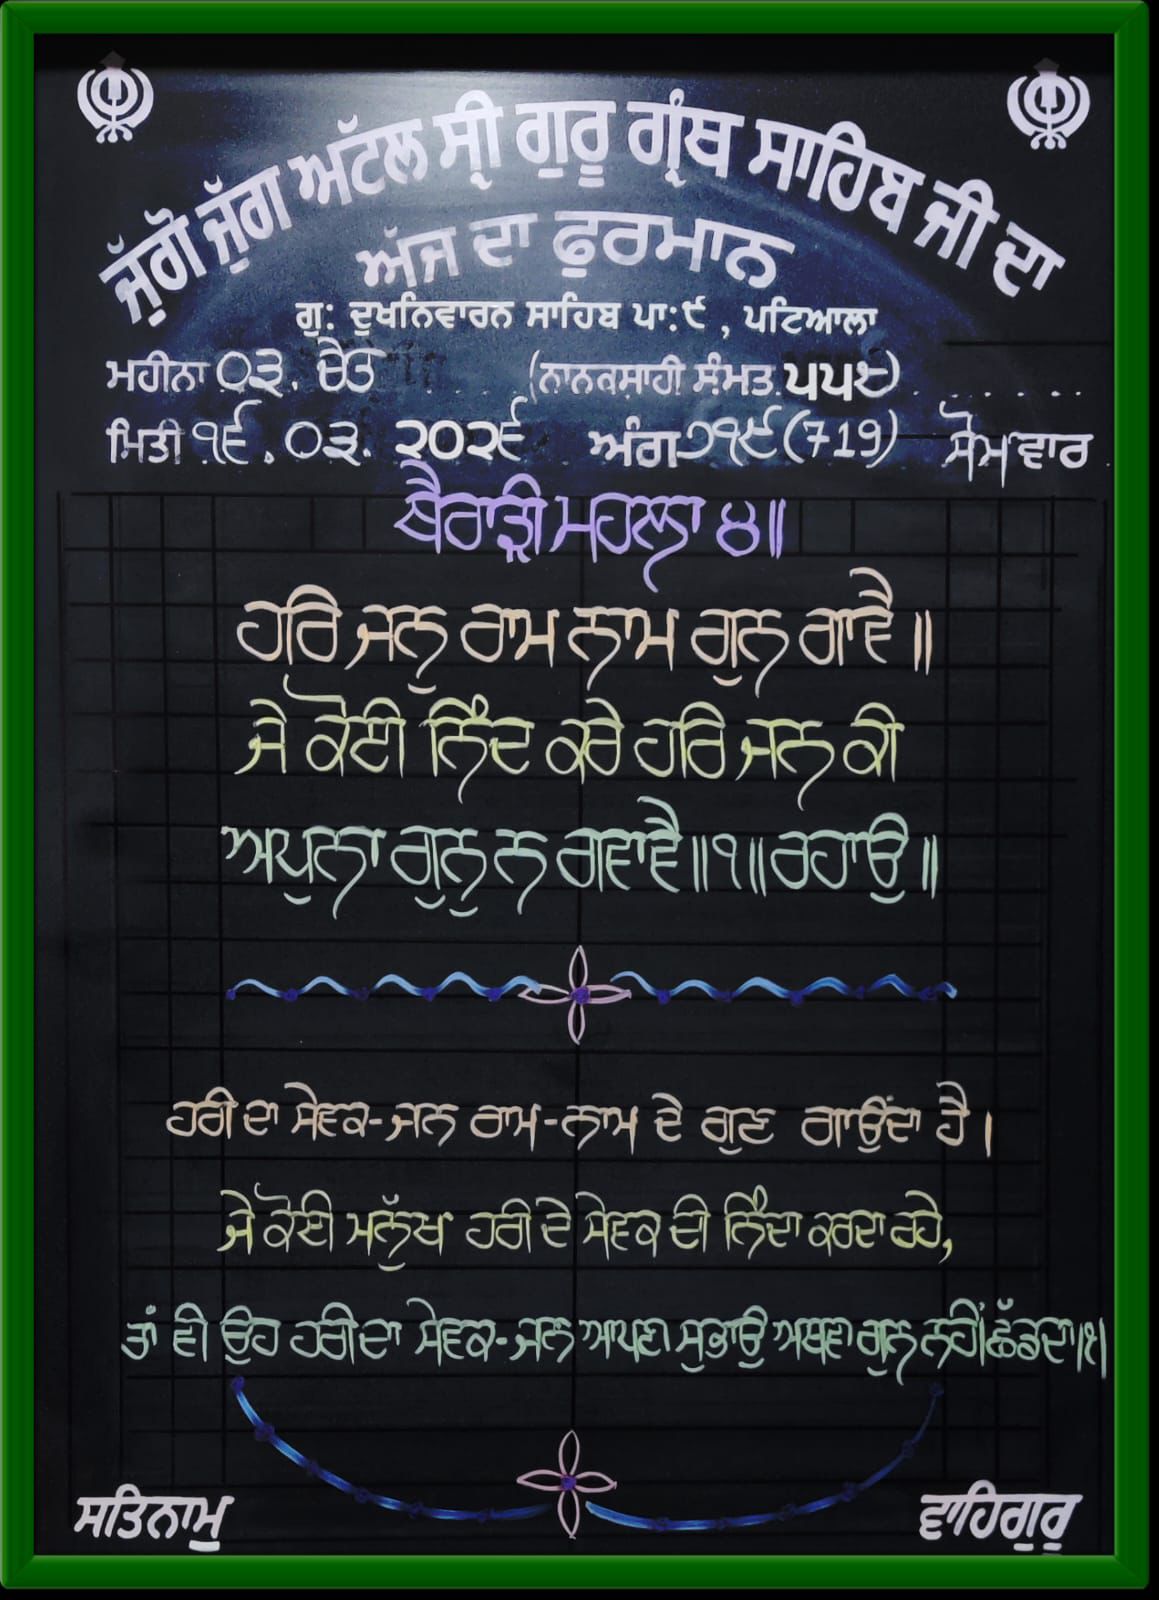 ਜੁੱਗੋ ਜੁੱਗ ਅੱਟਲ ਸ੍ਰੀ ਗੁਰੂ ਗ੍ਰੰਥ ਸਾਹਿਬ ਜੀ ਦਾ
ਅੱਜ ਦਾ ਫ਼ੁਰਮਾਨ
ਗੁ: ਦੁਖਨਿਵਾਰਨ ਸਾਹਿਬ ਪਾ:੯ , ਪਟਿਆਲਾ
ਮਹੀਨਾ ੦੩. ਚੈਤ (ਨਾਨਕਸਾਹੀ ਸੰਮਤ
ਮਿਤੀ ੧੬. ੦੩. ੨੦੨੬ ਅੰਗ ੭੧੯ (719) ਸੋਮਵਾਰ
ਬੈਰਾੜੀ ਮਹਲਾ ੪॥
ਹਰਿ ਜਨੁ ਰਾਮ ਨਾਮ ਗੁਨ ਗਾਵੈ ॥
ਜੇ ਕੋਈ ਨਿੰਦ ਕਰੇ ਹਰਿ ਜਨ ਕੀ
ਅਪੁਨਾ ਗੁਨੁ ਨ ਗਵਾਵੈ ॥੧॥ ਰਹਾਉ ॥
ਹਰੀ ਦਾ ਸੇਵਕ-ਜਨ ਰਾਮ-ਨਾਮ ਦੇ ਗੁਣ ਗਾਉਂਦਾ ਹੈ ।
ਜੇ ਕੋਈ ਮਨੁੱਖ ਹਰੀ ਦੇ ਸੇਵਕ ਦੀ ਨਿੰਦਾ ਕਰਦਾ ਰਹੇ,
ਤਾਂ ਵੀ ਉਹ ਹਰੀ ਦਾ ਸੇਵਕ-ਜਨ ਆਪਣਾ ਸੁਭਾਉ ਅਥਵਾ ਗੁਨ ਨਹੀਂ ਛੱਡਦਾ॥੧॥
ਸਤਿਨਾਮੁ
ਵਾਹਿਗੁਰੂ